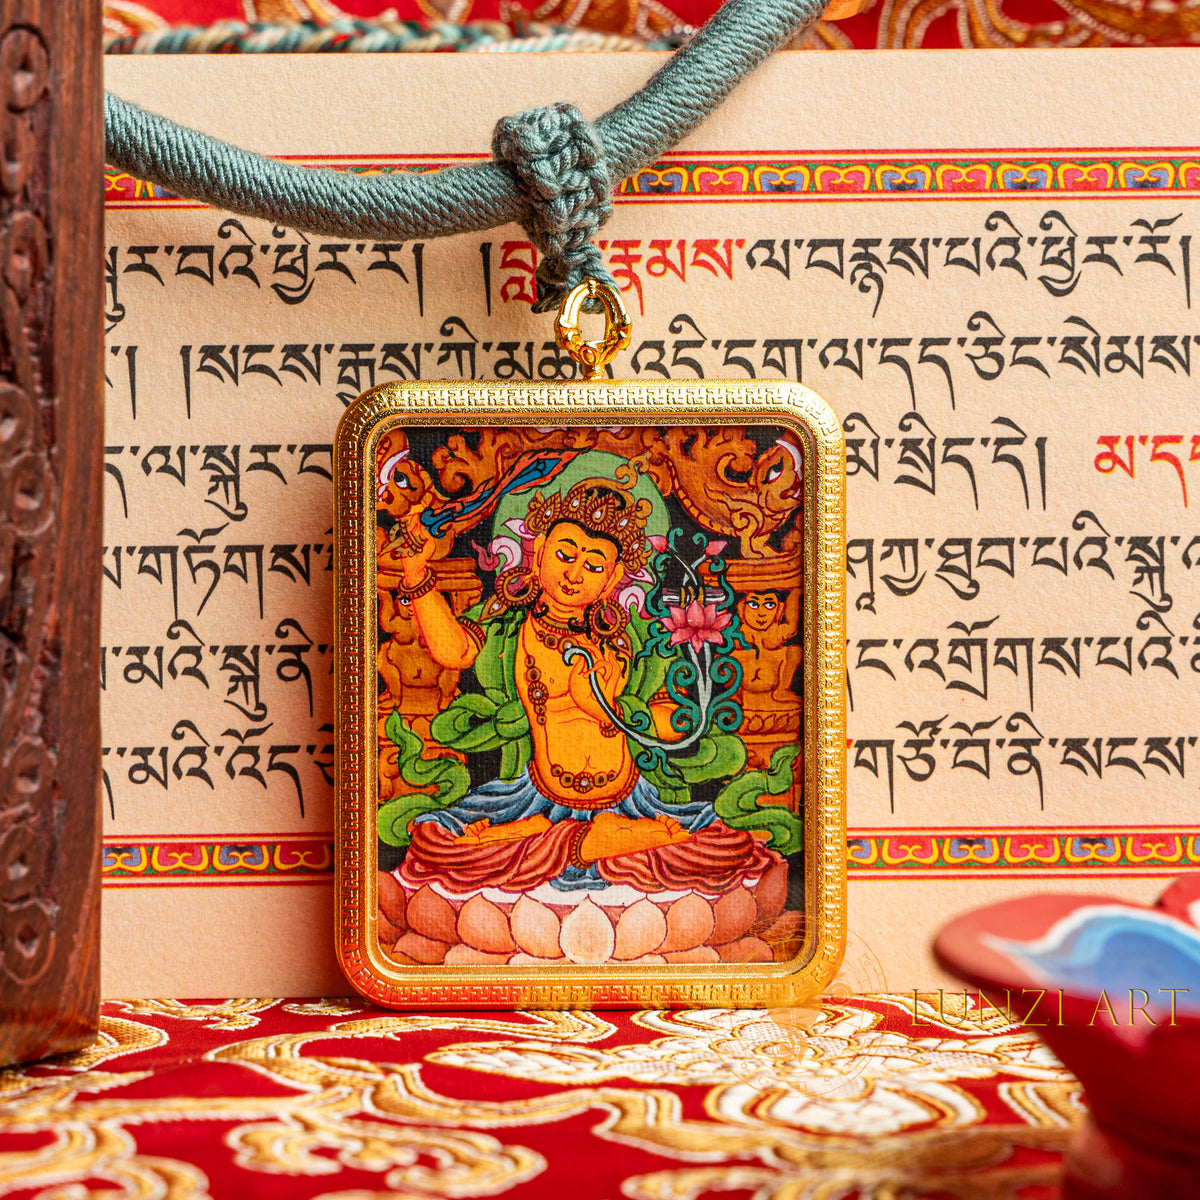 སྐུར་བའི་ཕྱིར་ར། །བླ་རྣམས་ལ་བརྙས་པའི་ཕྱིར་རོ།
།སངས་རྒྱས་ཀྱི་མཚན་འདི་དག་ལ་དད་ཅིང་སེམས་
ད་ལ་སྐུར་བ མི་སྲིད་དེ། མ་ད
གཏོགས་ ཤཱཀྱ་ཐུབ་པའི་སྐུ
མའི་སྐུ་ནི་ ང་འགྲོགས་པའི་
མའི་འོད་ གཙོ་བོ་ནི་སངས་
LUNZI ART